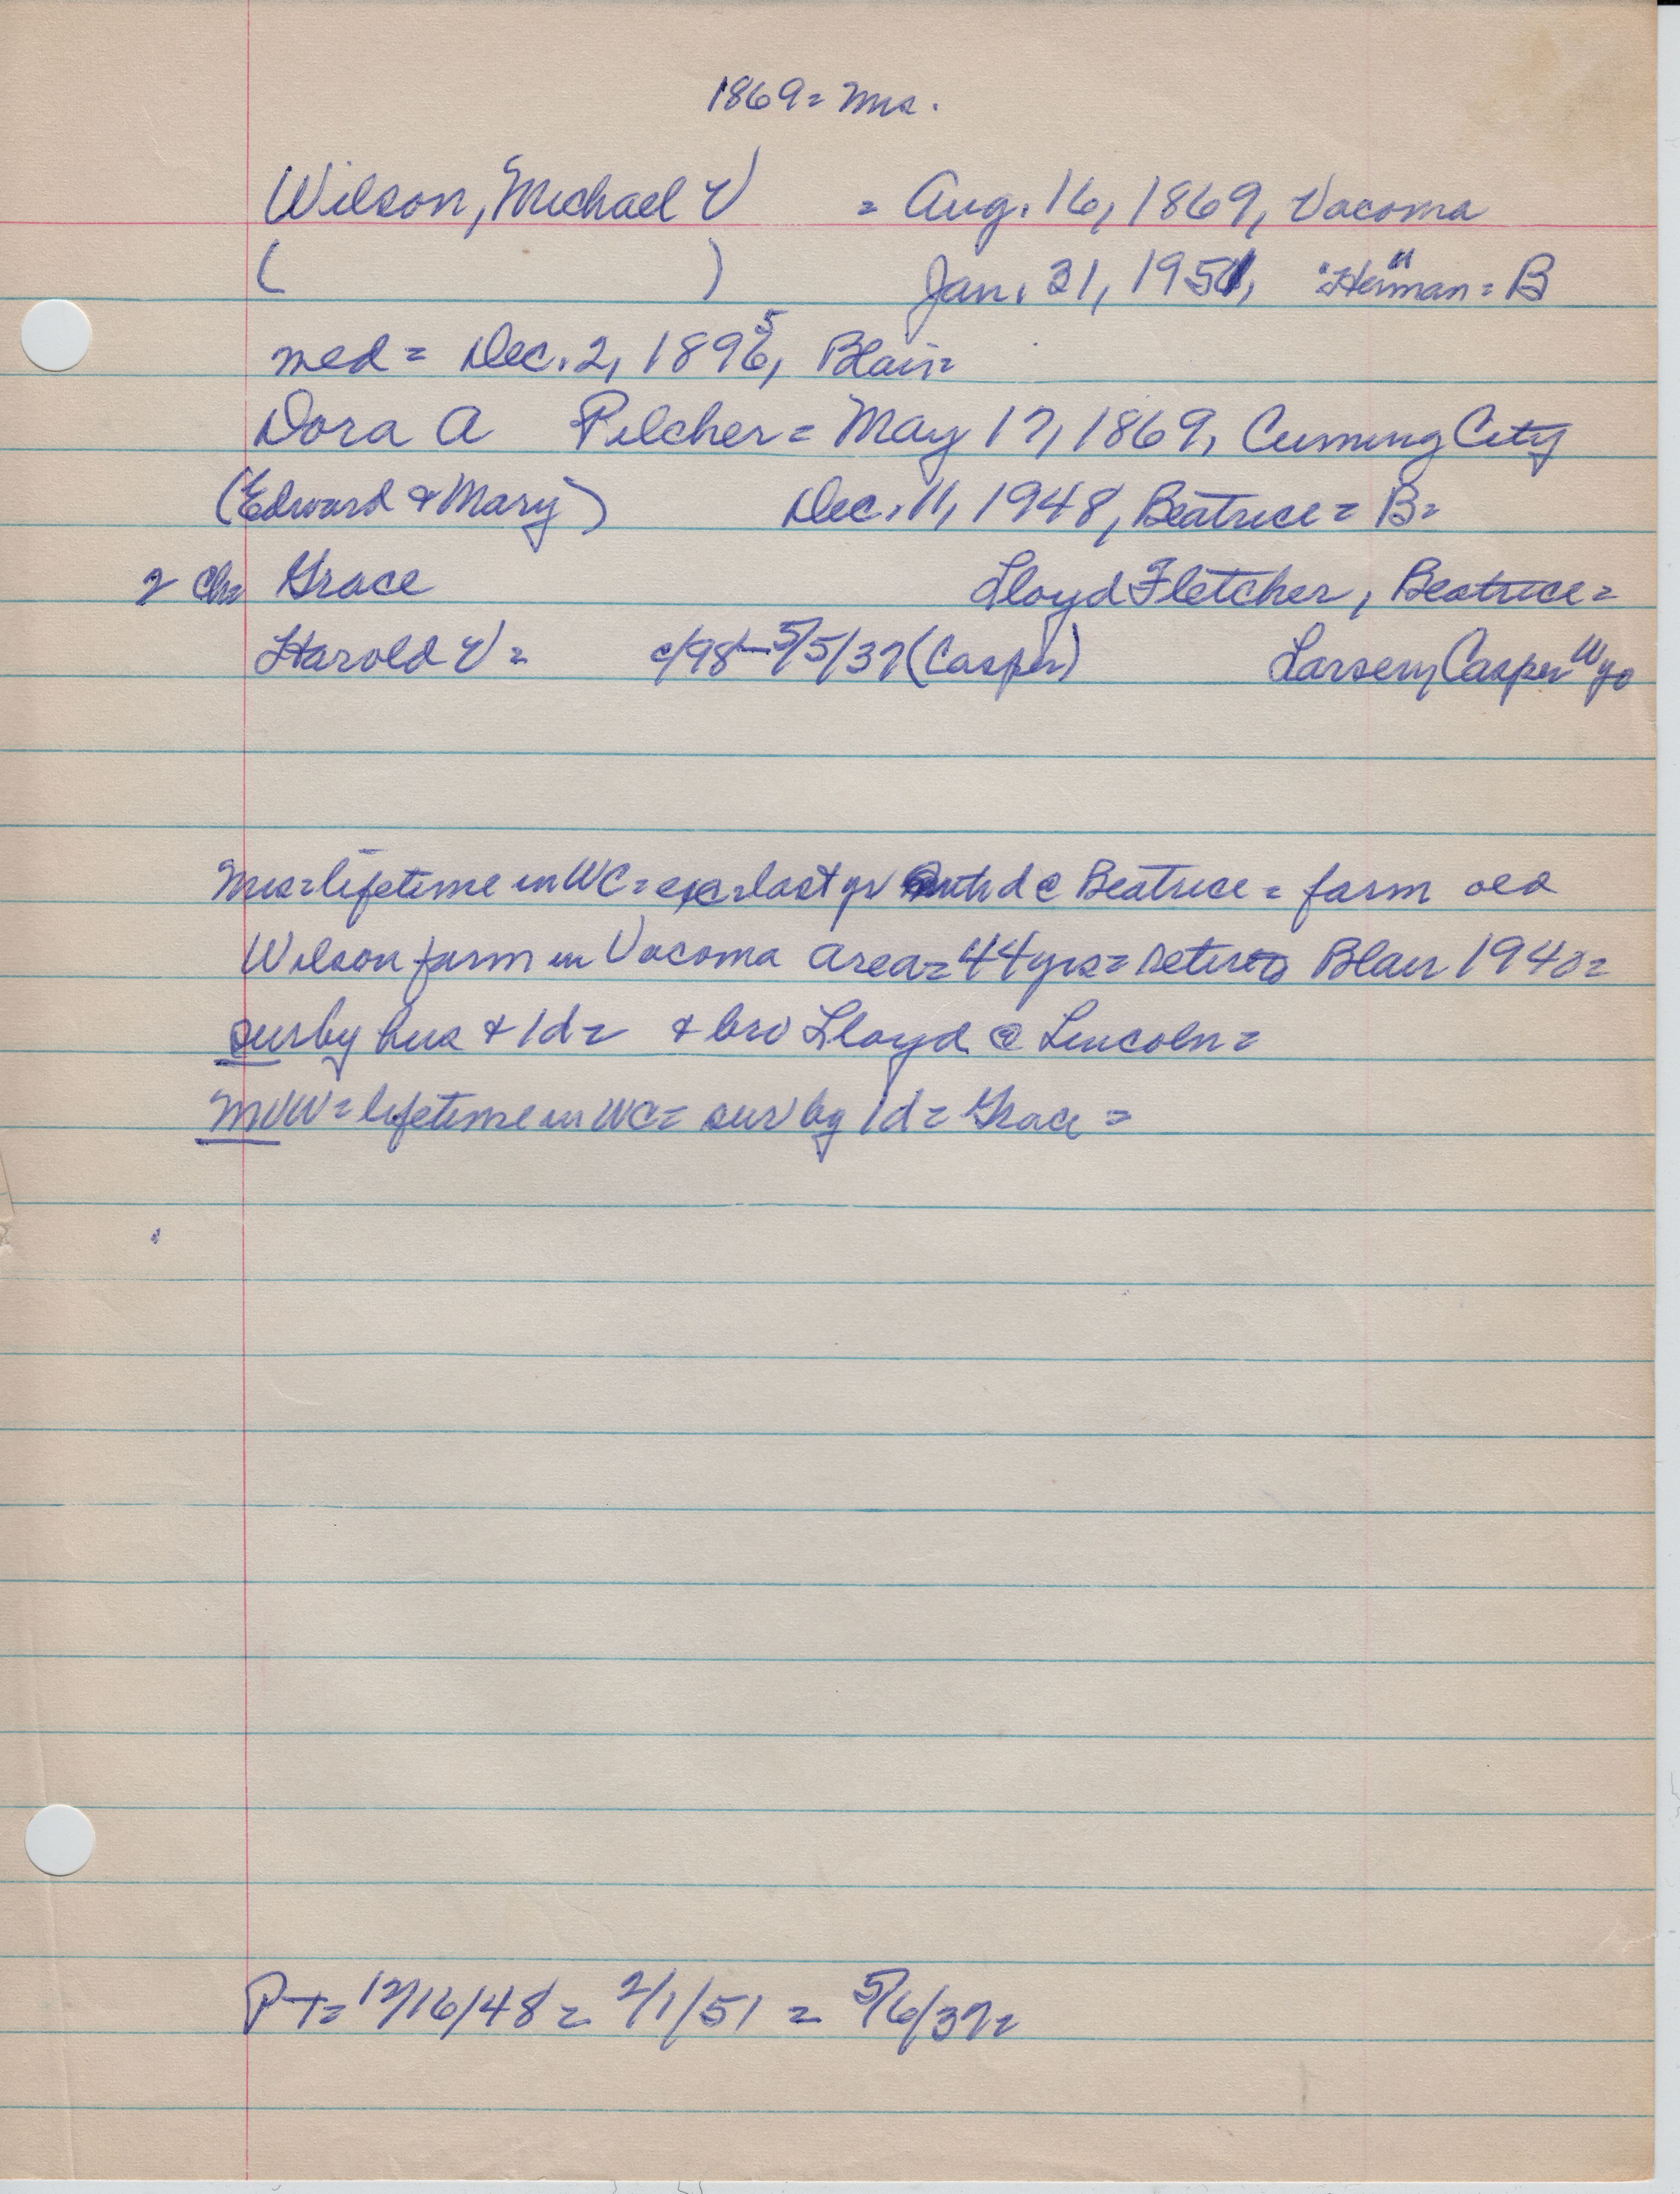 1869 = Mrs.
Wilson, Michael V = Aug. 16, 1869, Vacoma
( ) Jan. 31, 1951, "Herman" = B
med = Dec. 2, 1896, 5 Blair =
Dora A Pilcher = May 17, 1869, Cuming City
(Edward & Mary) Dec. 11, 1948, Beatrice = B =
2 ch = Grace Lloyd Fletcher, Beatrice =
Harold V = c/98 - 5/5/37 (Casper) Larsen, Casper Wyo
Mrs = lifetime in WC = exc = last yr with d @ Beatrice = farm old
Wilson farm in Vacoma area = 44 yrs = retire to Blair 1940 =
sur by hus & 1 d = & bro Lloyd @ Lincoln =
MVW = lifetime in WC = sur by 1 d = Grace =
PT = 12/16/48 = 2/1/51 = 5/6/37 =